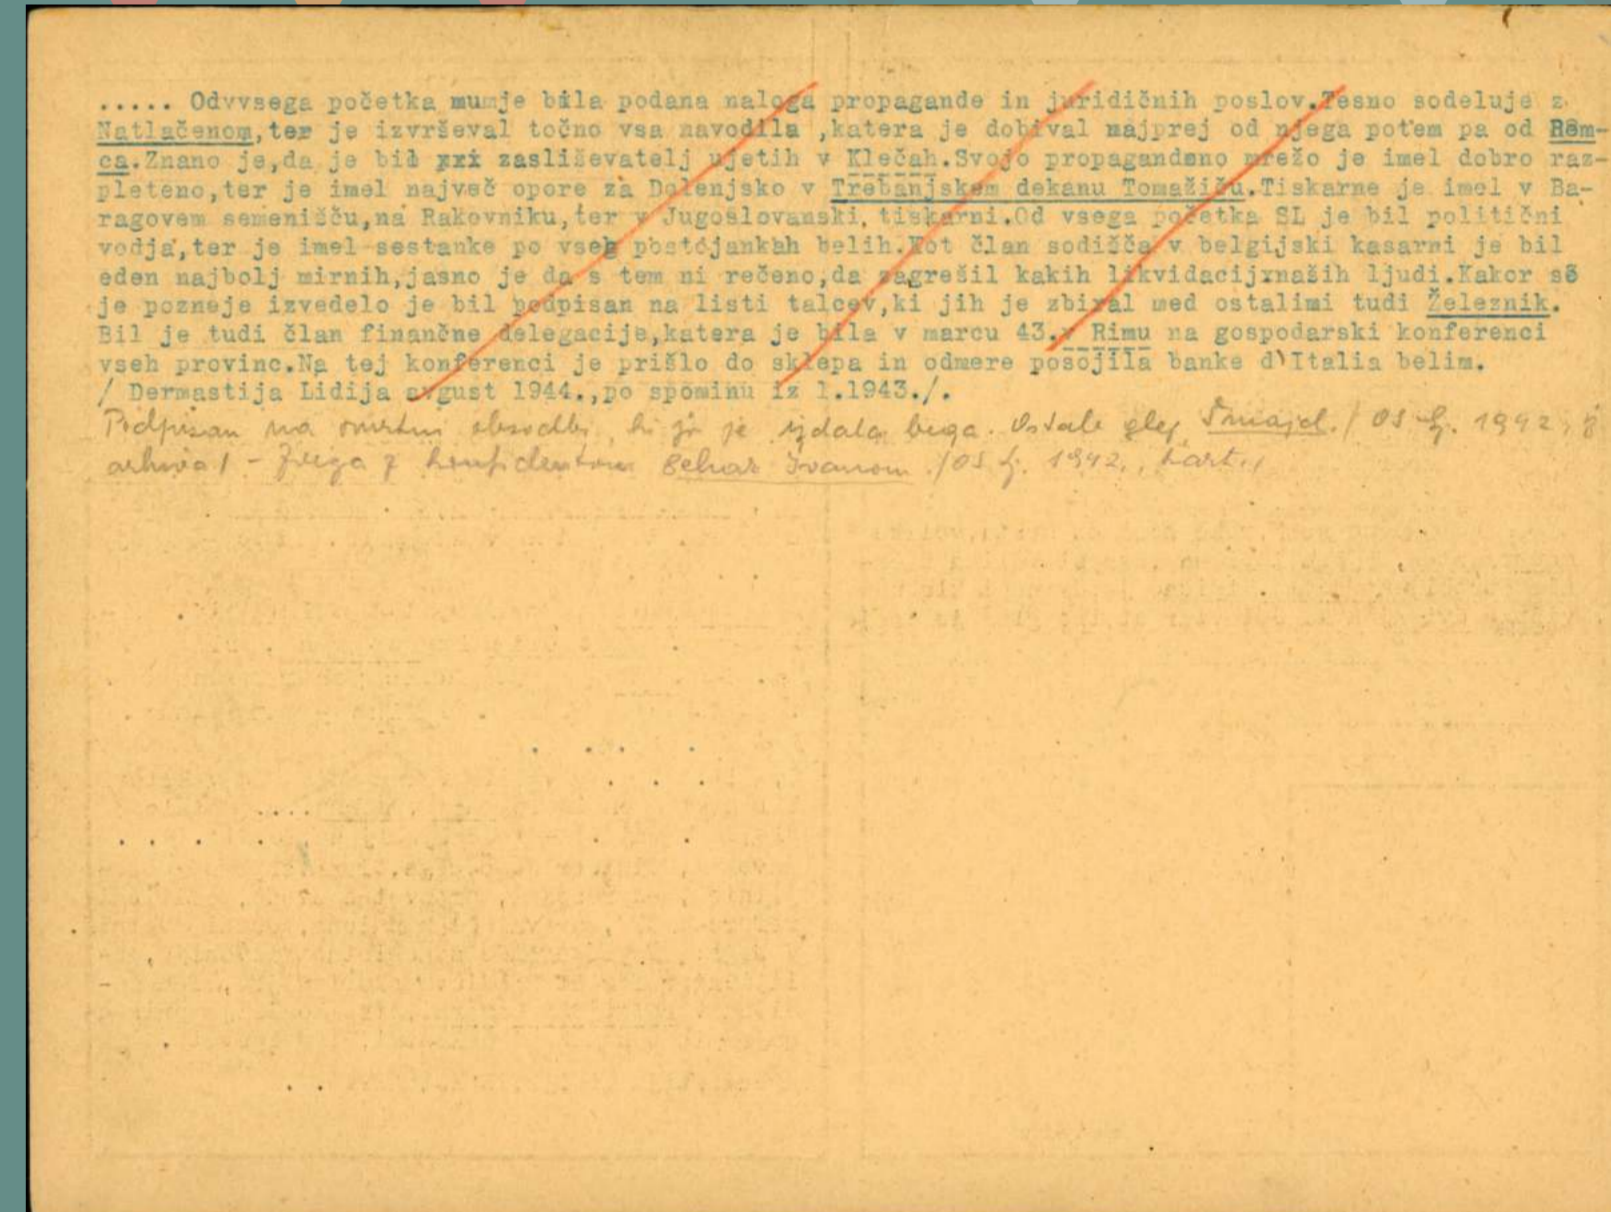 ..... Odvvsega početka mumje bila podana naloga propagande in juridičnih poslov.Tesno sodeluje z
Natlačenom,ter je izvrševal točno vsa navodila ,katera je dobival najprej od njega potem pa od Rêm-
ca.Znano je,da je bil pri zasliševatelj ujetih v Klečah.Svojo propagandeno mrežo je imel dobro raz-
pleteno,ter je imel največ opore za Dolenjsko v Trebanjskem dekanu Tomažiču.Tiskarne je imel v Ba-
ragovem semenišču,na Rakovniku,ter v Jugoslovanski tiskarni.Od vsega početka SL je bil politični
vodja,ter je imel sestanke po vseh postojankah belih.Kot član sodišča v belgijski kasarni je bil
eden najbolj mirnih,jasno je da s tem ni rečeno,da zagrešil kakih likvidacij naših ljudi.Kakor se
je pozneje izvedelo je bil podpisan na listi talcev,ki jih je zbiral med ostalimi tudi Železnik.
Bil je tudi član finančne delegacije,katera je bila v marcu 43.v Rimu na gospodarski konferenci
vseh provinc.Na tej konferenci je prišlo do sklepa in odmere posojila banke d'Italia belim.
/ Dermastija Lidija avgust 1944.,po spominu iz 1.1943./.
Podpisan na smrtni obsodbi, ki jo je izdala bega. Ostale glej Šmajd. / OS Lj. 1942, iz
arhiva / - Zveza z konfidentom Ivanom / OS Lj. 1942, kart./